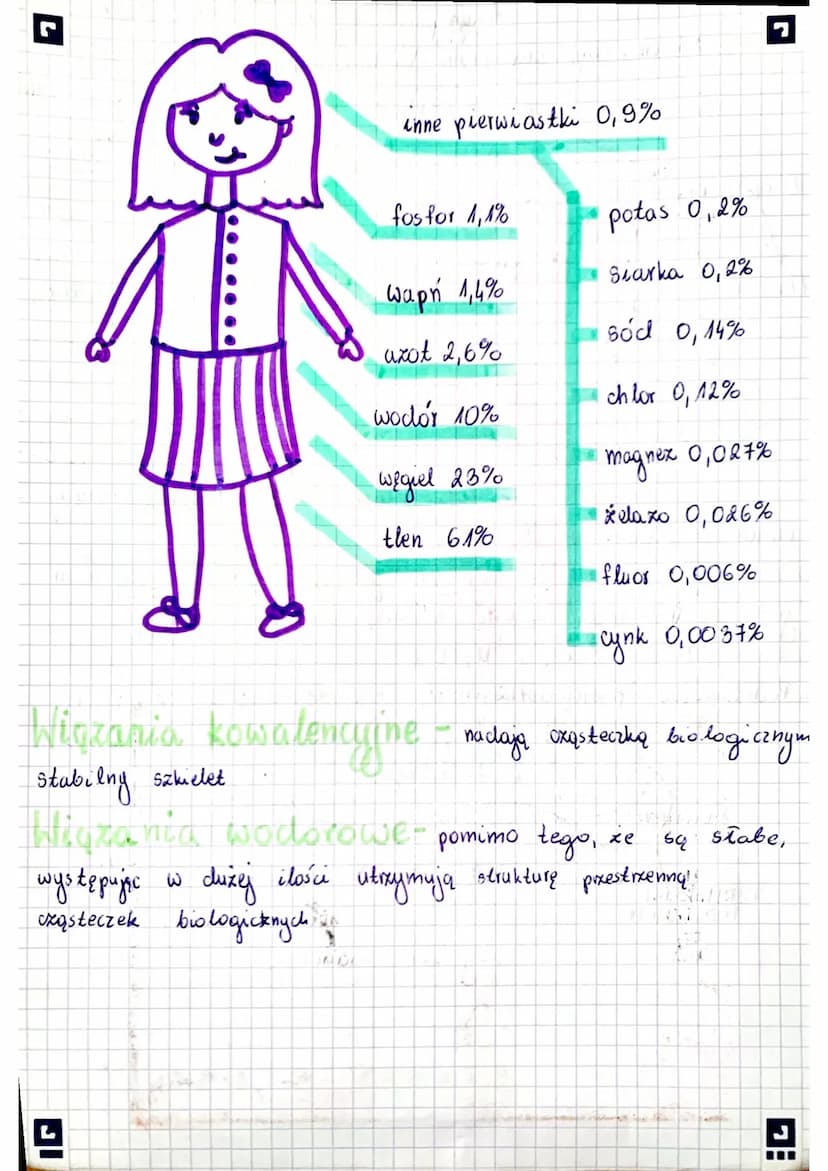 inne pierwiastki 0,9%
fosfor 1,1%
wapń 1,4%
azot 2,6%
wodór 10%
węgiel 23%
tlen 61%
potas 0,2%
siarka 0,2%
sód 0,14%
chlor 0,12%
magnez 0,027%
żelazo 0,026%
fluor 0,006%
cynk 0,0037%
Wiązania kowalencyjne - nadają cząsteczką biologicznym
stabilny szkielet
Wiązania wodorowe - pomimo tego, że są słabe,
występując w dużej ilości utrzymują strukturę przestrzenną
cząsteczek biologicznych